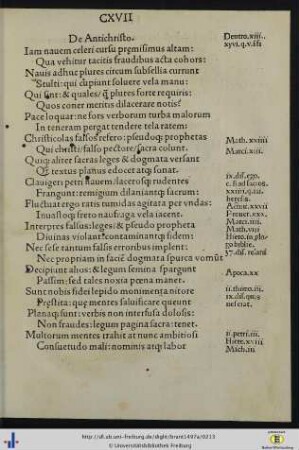 CXVII
De Antichristo.
Iam nauem celeri cursu premisimus altam:
Qua vehitur tacitis fraudibus acta cohors:
Nauis adhuc plures citum subsellia currunt
Stulti: qui cupiunt soluere vela manu:
Qui sunt: & quales/ plures forte requiris:
Quos coner meritis dilacerare notis?
Pace loquar: ne fors verborum turba malorum
In teneram pergat tendere tela ratem:
Christicolas falsos refero: pseudoq; prophetas
Qui christi/ falso pectore/ sacra colunt.
Quiq; aliter sacras leges & dogmata versant
textus planus edocet atq; sonat.
Clauigeri petri nauem/ lacerosq; rudentes
Frangunt: remigium dilaniantq; sacrum:
Fluctuat ergo ratis tumidas agitata per vndas:
Inuasloq; freto naufraga vela iacent.
Interpres falsus: legis; & pseudo propheta
Diuinas violant: contaminantq; fidem:
Nec sese tantum falsis erroribus implent:
Nec propriam in faciem dogmata spurca vomunt
Decipiunt alios: & legum semina spargunt
Passim: sed tales noxia poena manet.
Sunt nobis fidei lepido monimenta nitore
Prestita: que mentes saluificare queunt
Planaq; sunt: verbis non interfusa dolosis:
Non fraudes: legum pagina sacra: tenet.
Multorum mentes trahit at nunc ambitiosi
Consuetudo mali: nominis atq; labor
Math. xxiiii
Marci. xiii.
Actuu. xxvii
Apoca. xx
ii. petri. iii.
http://dl.ub.uni-freiburg.de/diglit/brant1497a/0213
© Universitätsbibliothek Freiburg